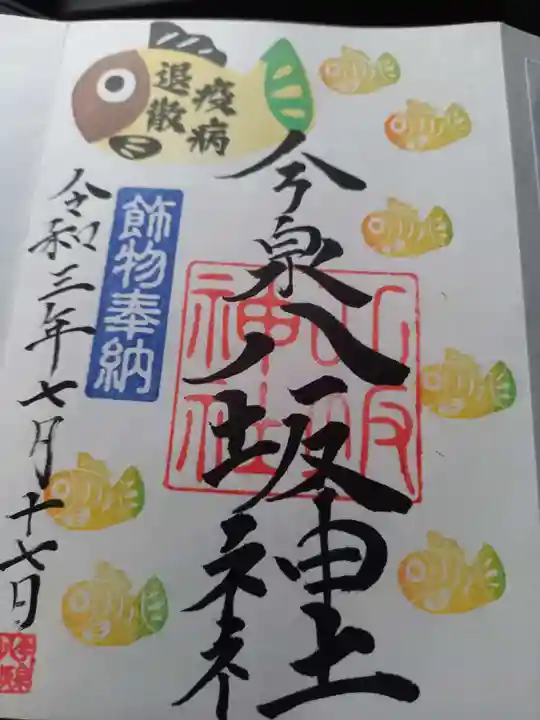 疫病
退散
今泉八坂神社
八坂
神社
飾物奉納
令和三年七月十七日